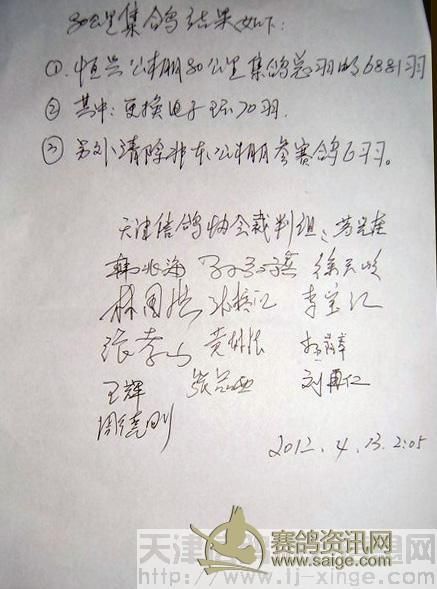 80公里集鸽结果如下:
①. 恒兴公棚80公里集鸽总羽数6881羽
② 其中: 更换电子环70羽.
③ 另外清除非本公棚参赛鸽6羽。
天津信鸽协会裁判组:
韩兆海
林国栋 李宝江
张孝山 黄树怀
王辉 张品西 刘再仁
周德刚
2012. 4. 13. 2:05
赛鸽资讯网
www.saige.com
天津 盟网
http://www.tj-xinge.com